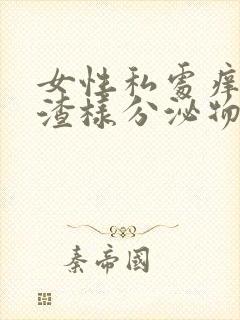 女性私處痒
渣樣分泌物
秦帝國